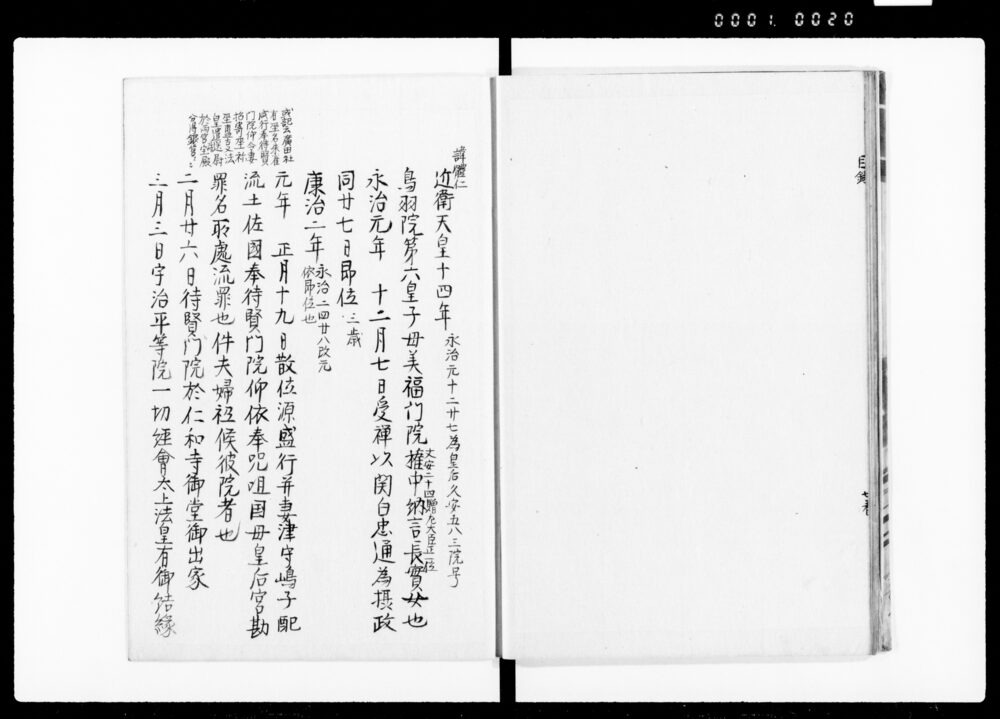 0001.0020
目録
諱體仁
近衛天皇十四年
永治元十二廿七為皇后久安五八三院号
鳥羽院第六皇子母美福门院権中納言長實女也
久安二十四贈左大臣正一位
永治元年 十二月七日受禅以関白忠通為摂政
同廿七日即位三歳
康治二年永治二四廿八改元
依即位也
元年 正月十九日散位源盛行并妻津守嶋子配
流土佐國奉待賢门院仰依奉呪咀国母皇后宮勘
罪名所處流罪也件夫婦祗候彼院者也
二月廿六日待賢门院於仁和寺御堂御出家
三月三日宇治平等院一切經會太上法皇有御結縁
或記云廣田社
盛行奉待賢
门院仰令妻